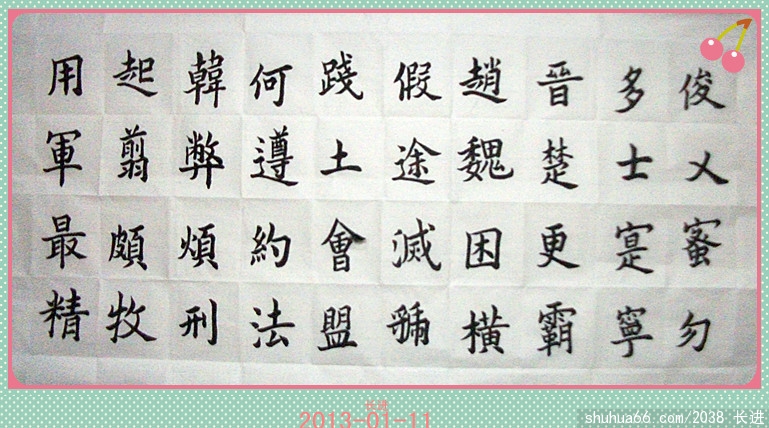 俊乂蜜勿
多士寔寧
晉楚更霸
趙魏困橫
假途滅虢
踐土會盟
何遵約法
韓弊煩刑
起翦頗牧
用軍最精
长进
2013-01-11
shuhua66.com/2038 长进